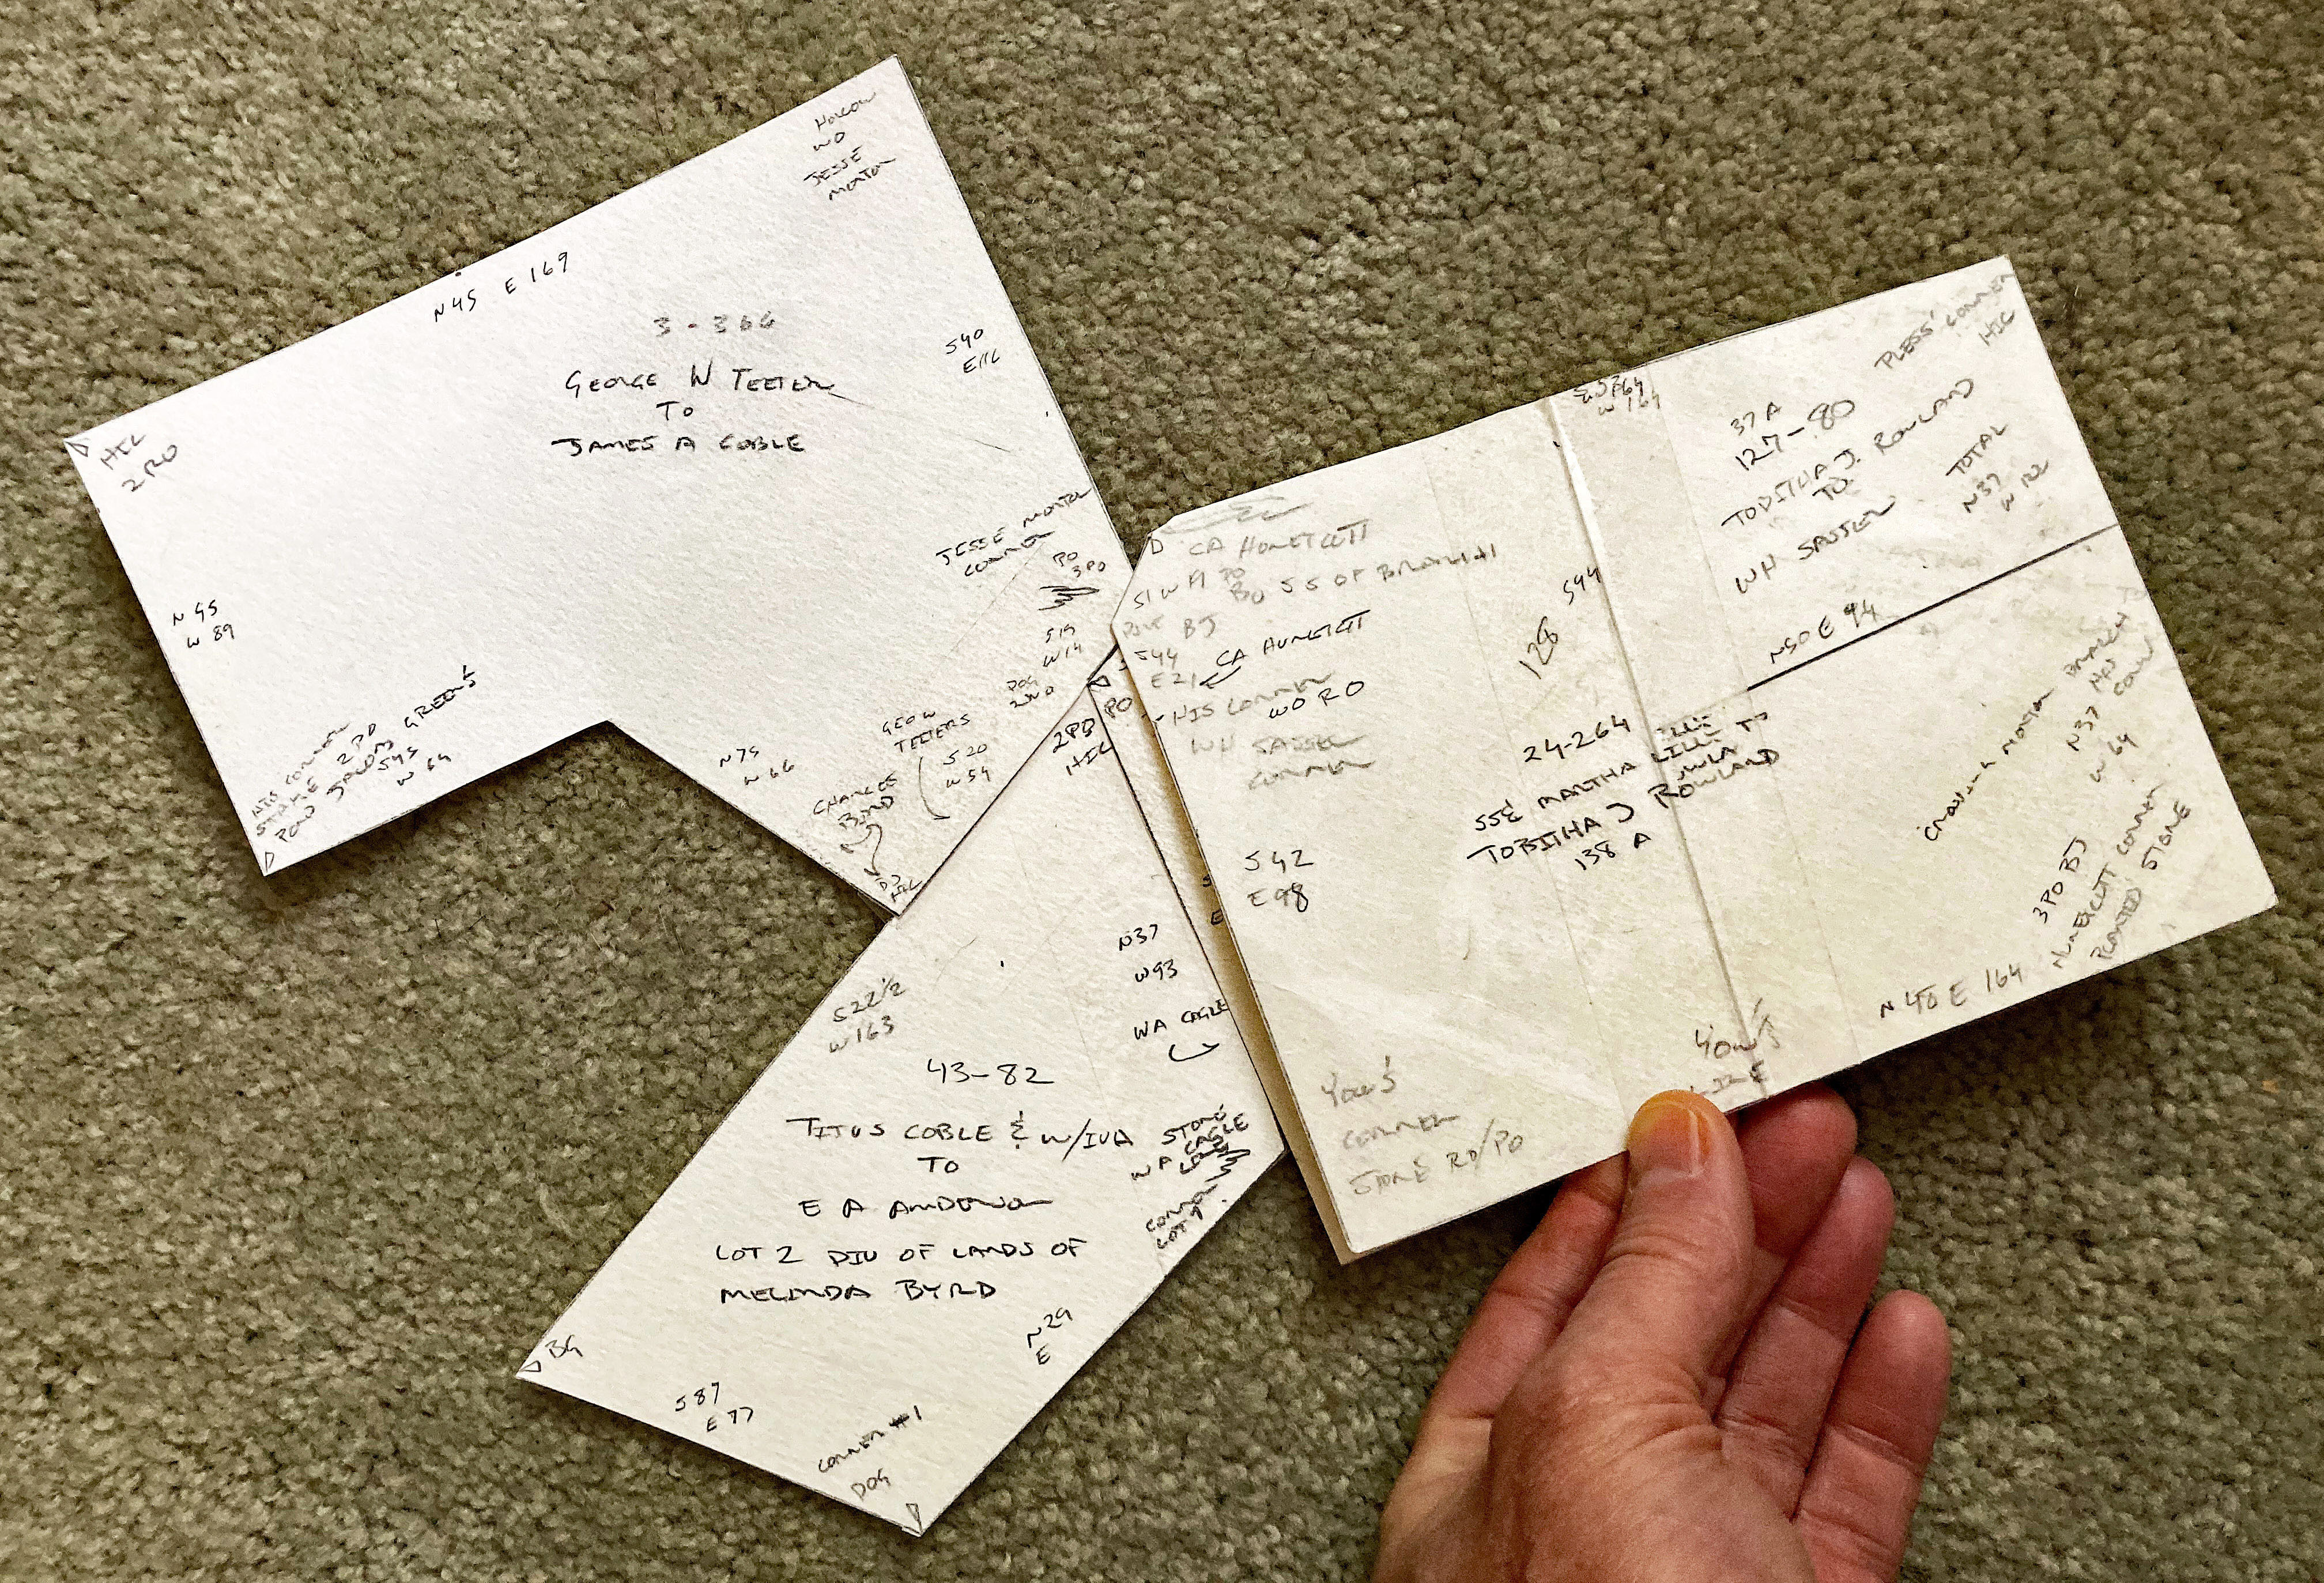 HOLLOW
WO
JESSE
MORTON
N45 E169
3-366
GEORGE W TEETER
TO
JAMES A COBLE
S40
E116
HIC
2RO
N45
W89
HIS CORNER
STAKE 2PO
POW GREEN'S
S45
W64
JESSE MORTON
CORNER
PO
3PO
S19
W14
DOG
2WO
GEO W
TEETERS
S20
W54
N75
W66
CHARLES
BYRD
HIC
2PO PO
HIC
N37
W93
WA CAGLE
S22 1/2
W163
43-82
TITUS COBLE & W/IVA
TO
E A ANDERSON
LOT 2 DIV OF LANDS OF
MELINDA BYRD
STONE
WA CAGLE
CORNER
LOT 1
N29
E
BG
S87
E77
CORNER #1
DOG
CA HUNEYCUTT
S1W
BO SS OF BRANCH
BJ
S44
E21
CA HUNEYCUTT
HIS CORNER
WO RO
WH SASSER
CORNER
S42
E98
128
S44
W164
37A
127-80
TOBITHA J. ROWLAND
TO
WH SASSER
PLESS' CORNER
HIC
TOTAL
N37
W122
N50E 94
24-264
MARTHA LILLY
TO
TOBITHA J ROWLAND
138 A
MORTON
BRANCH
N37
W64
3PO BJ
HUNEYCUTT CORNER
PLANTED STONE
N40E 164
YOW'S
LINE
YOW'S
CORNER
STONE RO/PO